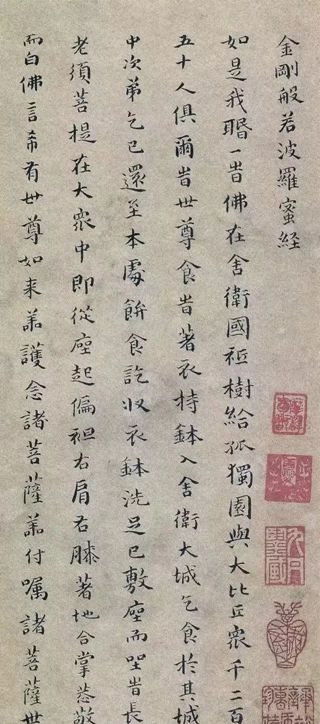 金剛般若波羅蜜経
如是我䎽一旹佛在舍衛國祇樹給孤獨園與大比丘衆千二百
五十人俱爾旹世尊食旹著衣持鉢入舍衛大城乞食於其城
中次第乞已還至本處飰食訖收衣鉢洗足已敷座而坐旹長
老須菩提在大衆中即從座起偏袒右肩右膝著地合掌恭敬
而白佛言希有世尊如来善護念諸菩薩善付囑諸菩薩世